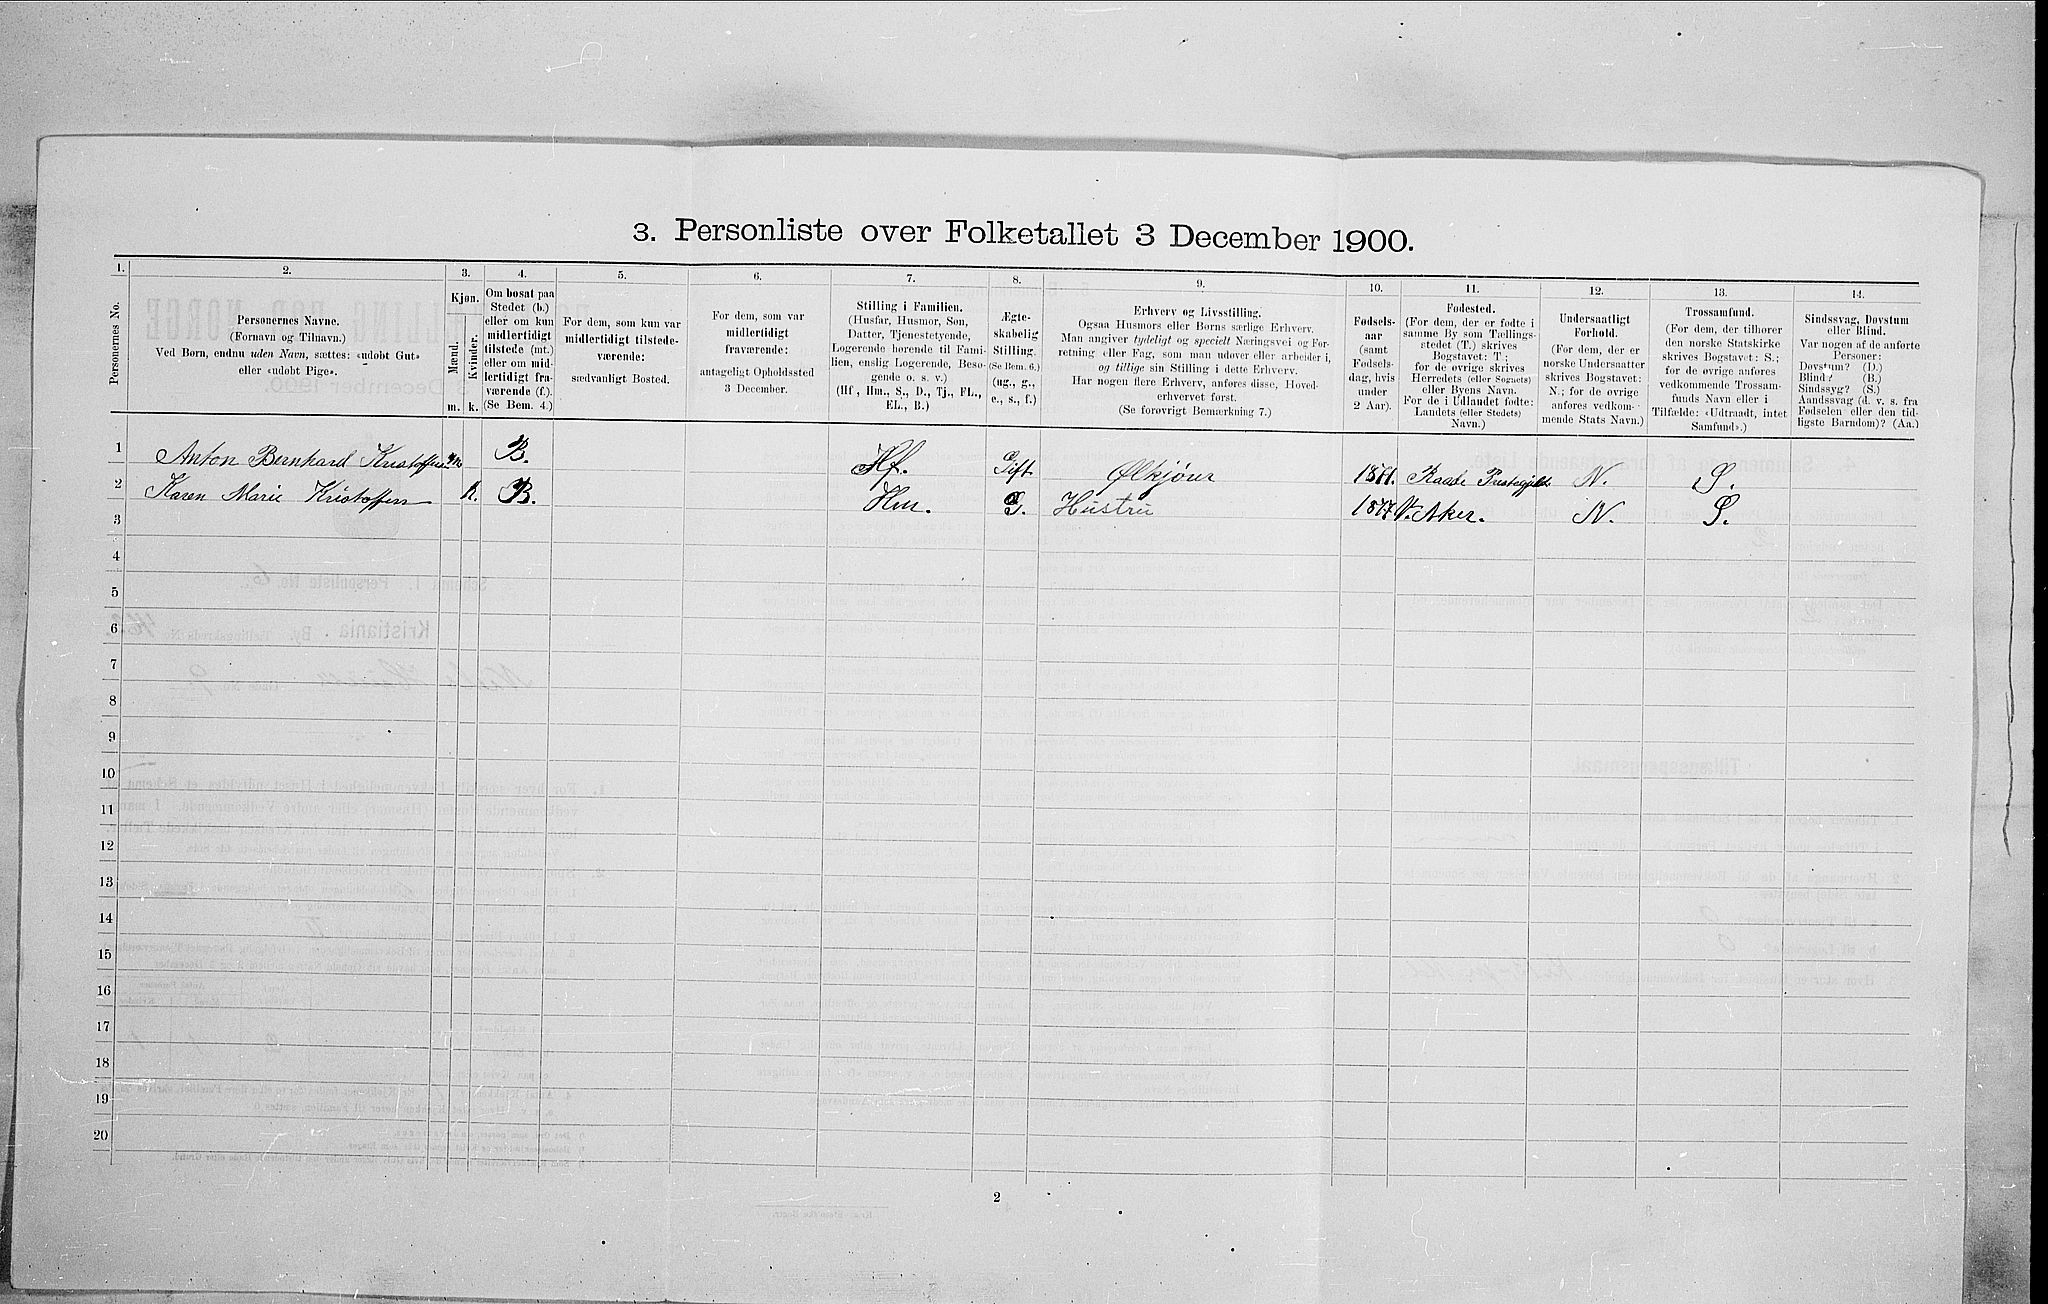 3. Personliste over Folketallet 3 December 1900.
1. 2. 3. 4. 5. 6. 7. 8. 9. 10. 11. 12. 13. 14.
Personernes No.
Personernes Navne.
(Fornavn og Tilnavn.)
Ved Børn, endnu uden Navn, sættes: «udøbt Gut»
eller «udøbt Pige».
Kjøn.
Mænd.
Kvinder.
m. k.
Om bosat paa
Stedet (b.)
eller om kun
midlertidigt
tilstede (mt.)
eller om mid-
lertidigt fra-
værende (f.).
(Se Bem. 4.)
For dem, som kun var
midlertidigt tilstede-
værende:
sædvanligt Bosted.
For dem, som var
midlertidigt
fraværende:
antageligt Opholdssted
3 December.
Stilling i Familien.
(Husfar, Husmor, Søn,
Datter, Tjenestetyende,
Logerende hørende til Fami-
lien, enslig Logerende, Besø-
gende o. s. v.)
(Hf, Hm., S., D., Tj., FL.,
EL., B.)
Ægte-
skabelig
Stilling.
(Se Bem. 6.)
(ug., g.,
e., s., f.)
Erhverv og Livsstilling.
Ogsaa Husmors eller Børns særlige Erhverv.
Man angiver tydeligt og specielt Næringsvei og For-
retning eller Fag, som man udøver eller arbeider i,
og tillige sin Stilling i dette Erhverv.
Har nogen flere Erhverv, anføres disse, Hoved-
erhvervet først.
(Se forøvrigt Bemærkning 7.)
Fødsels-
aar
(samt
Fødsels-
dag, hvis
under
2 Aar).
Fødested.
(For dem, der er fødte i
samme By som Tællings-
stedet (T.) skrives
Bogstavet: T.;
for de øvrige skrives
Herredets (eller Sognets)
eller Byens Navn.
For de i Udlandet fødte:
Landets (eller Stedets)
Navn.)
Undersaatligt
Forhold.
(For dem, der er
norske Undersaatter
skrives Bogstavet:
N.; for de øvrige
anføres vedkom-
mende Stats Navn.)
Trossamfund.
(For dem, der tilhører
den norske Statskirke
skrives Bogstavet: S.;
for de øvrige anføres
vedkommende Trossam-
funds Navn eller i
Tilfælde: «Udtraadt, intet
Samfund».)
Sindssvag, Døvstum
eller Blind.
Var nogen af de anførte
Personer:
Døvstum? (D.)
Blind? (B.)
Sindssyg? (S.)
Aandssvag (d. v. s. fra
Fødselen eller den tid-
ligste Barndom)? (Aa.)
1 Anton Bernhard m. B. Hf. Gift Ølkjører Raade N. S.
2 Karen Marie Kristoffersen k. B. Hm. G. Hustru V. Aker. N. S.
3
4
5
6
7
8
9
10
11
12
13
14
15
16
17
18
19
20
2